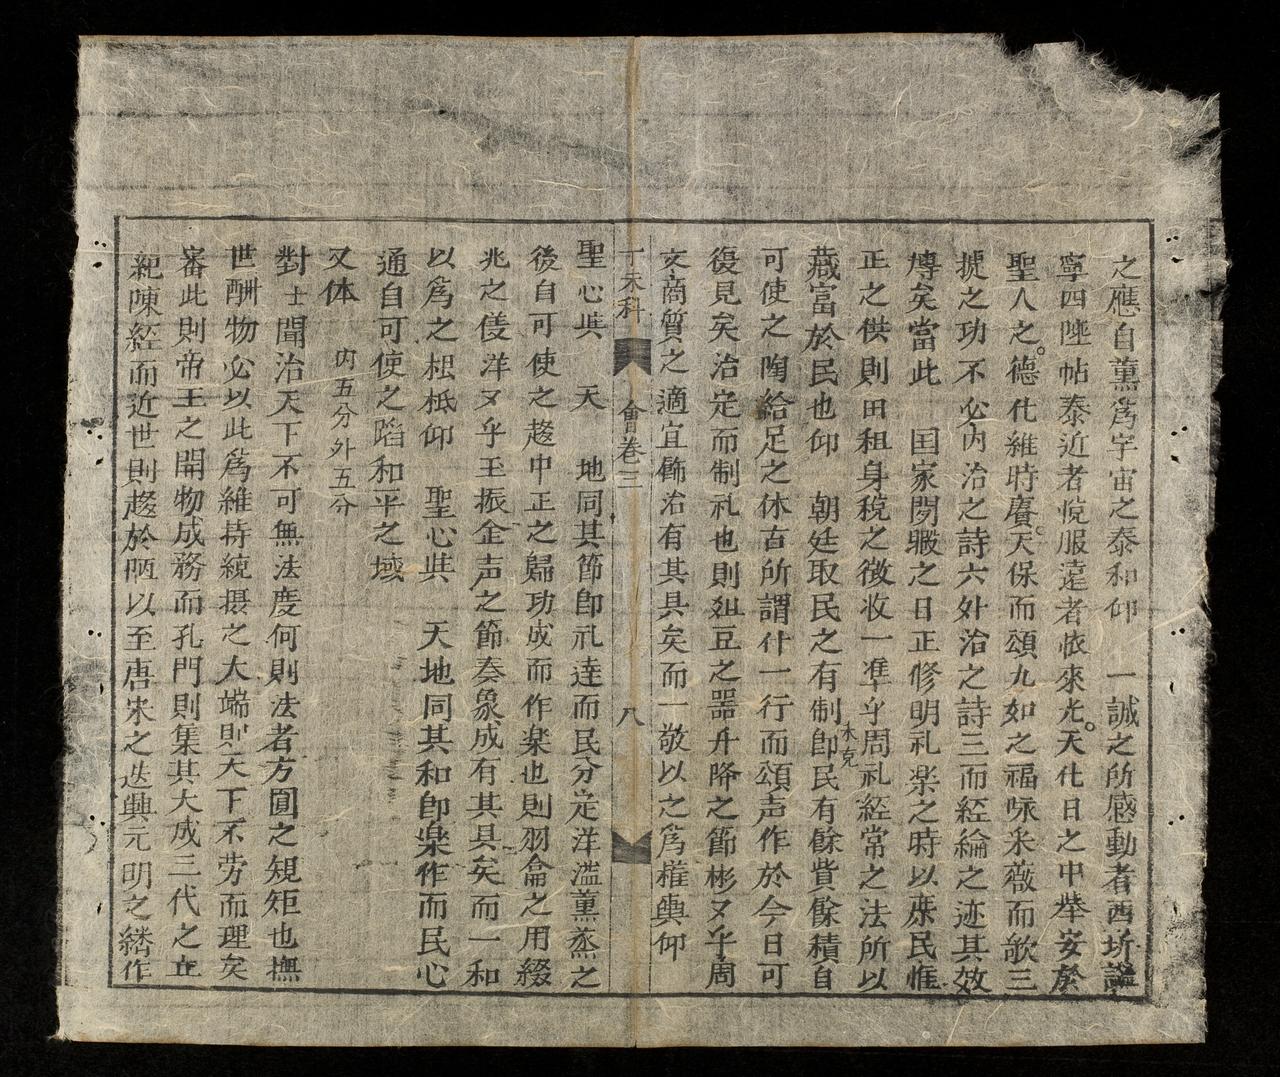 之應自薰爲宇宙之泰和仰 一誠之所感動者西圻謐
寧四陲帖泰近者悅服遠者依來光天化日之中舉安於
聖人之德化維時賡天保而頌九如之福咏采薇而歌三
捷之功不必內治之詩六外治之詩三而經綸之迹其效
博矣當此 囯家閒暇之日正修明礼楽之時以庶民惟
正之供則田租身稅之徵收一準乎周礼經常之法所以
藏富於民也仰 朝廷取民之有制即民有餘貲餘積自
可使之陶給足之休古所謂什一行而頌声作於今日可
復見矣治定而制礼也則俎豆之器升降之節彬〻乎周
文商質之適宜飾治有其具矣而一敬以之爲權輿仰
丁未科 會卷三 八
聖心與 天 地同其節即礼達而民分定洋溢薰蒸之
後自可使之趨中正之歸功成而作楽也則羽龠之用綴
兆之儀洋〻乎玉振金声之節奏象成有其具矣而一和
以爲之根柢仰 聖心與 天地同其和即楽作而民心
通自可使之蹈和平之域
又体 內五分外五分
對士聞治天下不可無法度何則法者方圓之規矩也撫
世酬物必以此爲維持統摄之大端則天下不劳而理矣
審此則帝王之開物成務而孔門則集其大成三代之立
紀陳經而近世則趨於陋以至唐宋之迭興元明之継作